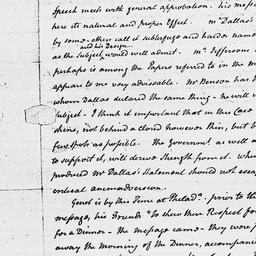 speech meets with general approbation. his mess
here its natural and proper Effect. Mr Dallas's
by some - others call it subterfuge and harder names
and his Design
as the Subject would well admit. Mr. Jefferson's
perhaps is among the Papers referred to in the m
appear to me very advisable. Mr Benson has
whom Dallas declared the same thing - he will
subject. I think it important that in this Case
shine, not behind a cloud however thin, but
few spots as possible. The Governmt. as well a
to support it, will derive Strength from it. whe
produced Mr Dallas's Statement should not escap
critical animadversion.
Genet is by this Time at Philada. - prior to th
message, his Friends "to shew their Respect for
for a Dinner - the message came - they were
away the morning of the Dinner, accompanie